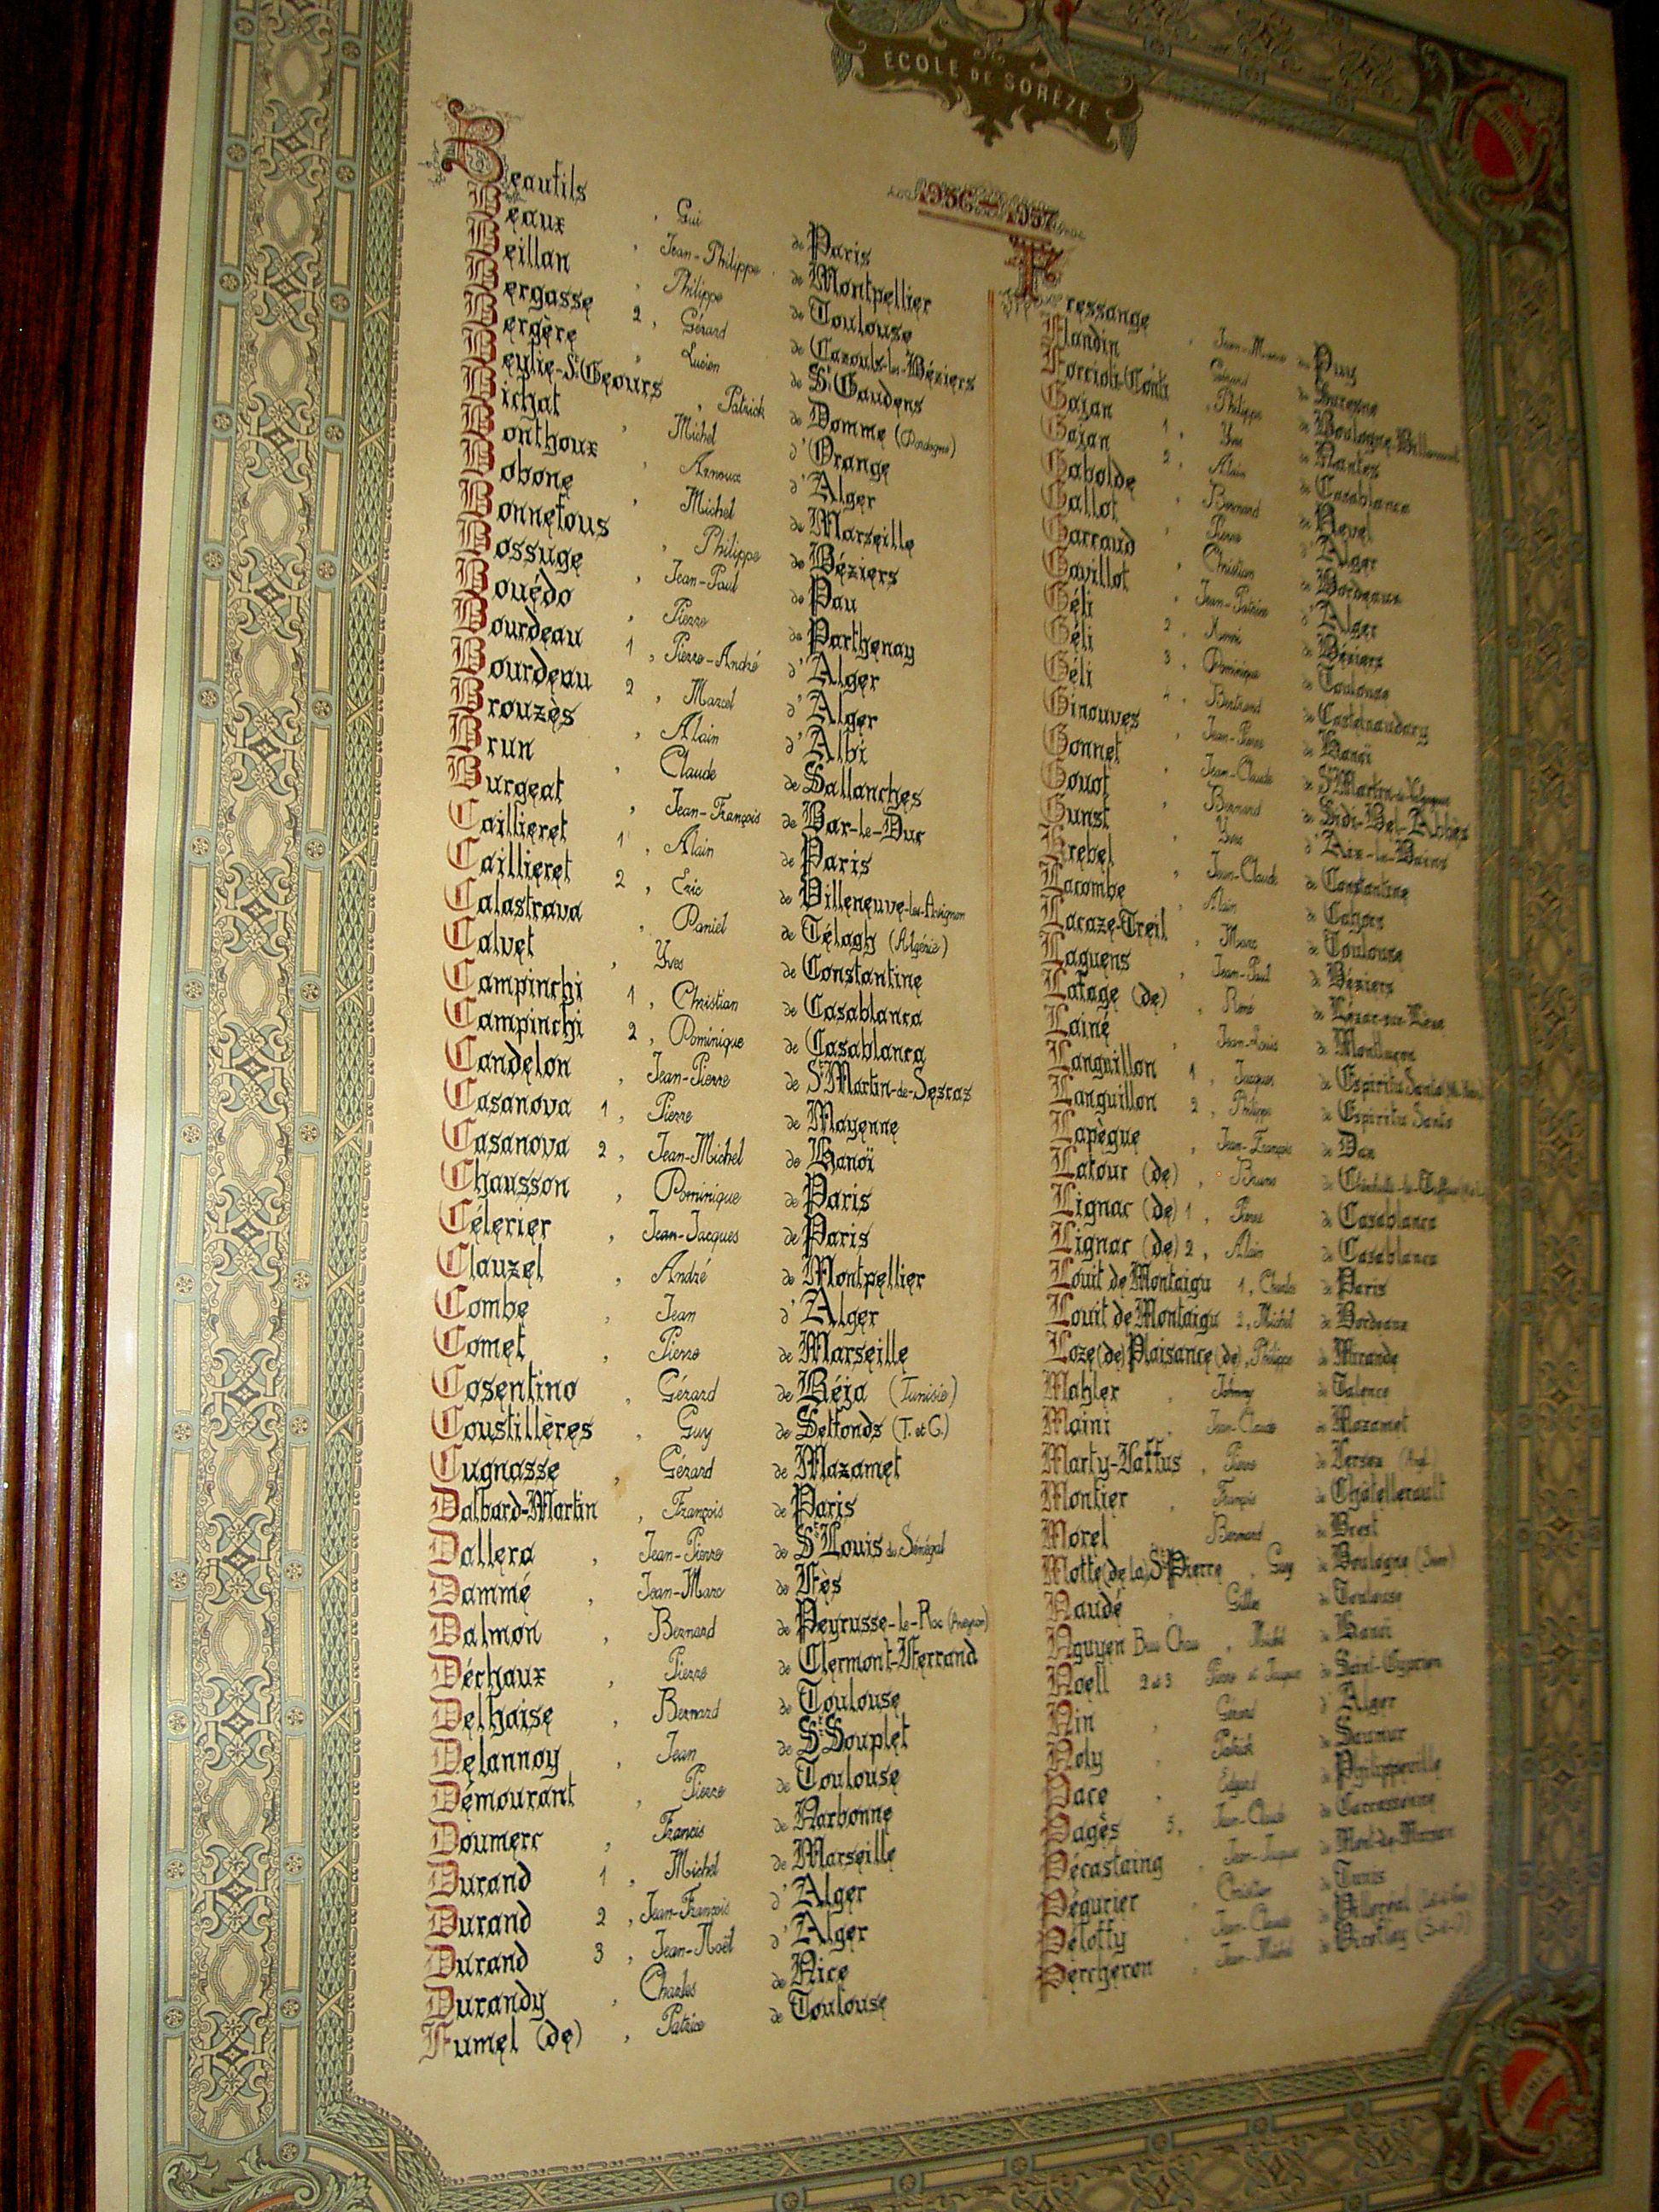 ECOLE DE SORÈZE
1956 – 1957
Beaufils, Gui de Paris
Beaux, Jean-Philippe de Montpellier
Beillan, Philippe de Toulouse
Bergasse 2, Gérard de Cazouls-les-Béziers
Bergère, Lucien de St Gaudens
Beylie-St Geours, Patrick de Domme (Dordogne)
Bichat, Michel d'Orange
Bonthoux, Arnoux d'Alger
Bobone, Michel de Marseille
Bonnefous, Philippe de Béziers
Bossuge, Jean-Paul de Pau
Bouédo, Pierre de Parthenay
Bourdeau 1, Pierre-André d'Alger
Bourdeau 2, Marcel d'Alger
Brouzès, Alain d'Albi
Brun, Claude de Sallanches
Burgeat, Jean-François de Bar-le-Duc
Caillieret 1, Alain de Paris
Caillieret 2, Eric de Villeneuve-les-Avignon
Calastrava, Daniel de Télagh (Algérie)
Calvet, Yves de Constantine
Campinchi 1, Christian de Casablanca
Campinchi 2, Dominique de Casablanca
Candelon, Jean-Pierre de St Martin-de-Sescas
Casanova 1, Pierre de Mayenne
Casanova 2, Jean-Michel de Hanoï
Chausson, Dominique de Paris
Célerier, Jean-Jacques de Paris
Clauzel, André de Montpellier
Combe, Jean d'Alger
Comet, Pierre de Marseille
Cosentino, Gérard de Béja (Tunisie)
Coustillères, Guy de Setfonds (T. et G.)
Cugnasse, Gérard de Mazamet
Dalbard-Martin, François de Paris
Dallera, Jean-Pierre de St Louis du Sénégal
Dammé, Jean-Marc de Fès
Dalmon, Bernard de Peyrusse-le-Roc (Aveyron)
Déchaux, Pierre de Clermont-Ferrand
Delhaise, Bernard de Toulouse
Delannoy, Jean de St Souplet
Démourant, Pierre de Toulouse
Doumerc, Francis de Narbonne
Durand 1, Michel de Marseille
Durand 2, Jean-François d'Alger
Durand 3, Jean-Noël d'Alger
Durandy, Charles de Nice
Fumel (de), Patrice de Toulouse
Fressange, Jean-Marie du Puy
Flandin, Gérard de Suresne
Forcioli-Conti, Philippe de Boulogne-Billancourt
Gajan 1, Yves de Nantes
Gajan 2, Alain de Casablanca
Gabolde, Bernard de Revel
Gallot, Pierre d'Alger
Garraud, Christian de Bordeaux
Gavillot, Jean-Patrice d'Alger
Géli 2, Henri de Béziers
Géli 3, Dominique de Toulouse
Géli 4, Bertrand de Castelnaudary
Ginouves, Jean-Pierre de Hanoï
Gonnet, Jean-Claude de St Martin-de-
Gouot, Bernard de Sidi-Bel-Abbès
Gunst, Yves d'Aix-les-Bains
Hrebel, Jean-Claude de Constantine
Lacombe, Alain de Cahors
Lacaze-Treil, Marc de Toulouse
Laguens, Jean-Paul de Béziers
Lafage (de), René de Lézat-sur-Lèze
Lainé, Jean-Louis de Montluçon
Languillon 1, Jacques de Espiritu Santo
Languillon 2, Philippe de Espiritu Santo
Lapègue, Jean-François de Dax
Latour (de), Bruno de
Lignac (de) 1, Pierre de Casablanca
Lignac (de) 2, Alain de Casablanca
Louit de Montaigu 1, Charles de Paris
Louit de Montaigu 2, Michel de Bordeaux
Loze (de) Plaisance (de), Philippe de Mirande
Mahler, Johnny de Talence
Maini, Jean-Claude de Mazamet
Marty-Laffus, Pierre de Jersey (Angl.)
Montier, François de Châtellerault
Morel, Bernard de Brest
Motte (de la) St Pierre, Guy de Boulogne (Seine)
Naudé, Gilles de Toulouse
Nguyen Buu Chau, Michel de Hanoï
Noëll 2 et 3, Pierre et Jacques de Saint-Cyprien
Nin, Gérard d'Alger
Noly, Patrick de Saumur
Pace, Edgard de Philippeville
Pagès 5, Jean-Claude de Carcassonne
Pécastaing, Jean-Jacques de Mont-de-Marsan
Péqurier, Christian de Tunis
Péloffy, Jean-Claude de Villeréal (Lot-et-Gar.)
Percheron, Jean-Michel de Viroflay (S-et-O)